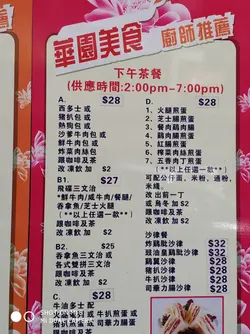 華園美食
廚師推薦
下午茶餐
(供應時間:2:00pm-7:00pm)
A. $28
西多士 或
豬扒包 或
熱狗包 或
沙爹牛肉包 或
鮮牛肉包 或
炸菜肉絲包
跟咖啡及茶
改凍飲加 $2
B1. $27
飛碟三文治
*鮮牛肉/咸牛肉/餐腿/
吞拿魚/芝士火腿
(**以上任選一款**)
跟咖啡及茶
改凍飲 加 $2
B2. $25
吞拿魚三文治 或
各式雙拼三文治
跟咖啡及茶
改凍飲 加 $2
C. $28
牛油多士 配
豬扒煎蛋 或 牛扒煎蛋/
D. $28
1、火腿煎蛋
2、芝士腸煎蛋
3、餐肉雞肉腸
4、雞翼煎蛋
5、紅腸煎蛋
6、榨菜肉絲煎蛋
7、五香肉丁煎蛋
(**以上任選一款**)
可配公仔麵,米粉,通粉,
米綫
改出前一丁
或 烏冬加 $2
跟咖啡及茶
改凍飲 加 $2
沙律餐
炸雞肶沙律 $32
豉油皇雞肶沙律 $32
雞翼沙律 $28
豬扒沙律 $28
牛扒沙律 $28
司華力腸沙律 $28